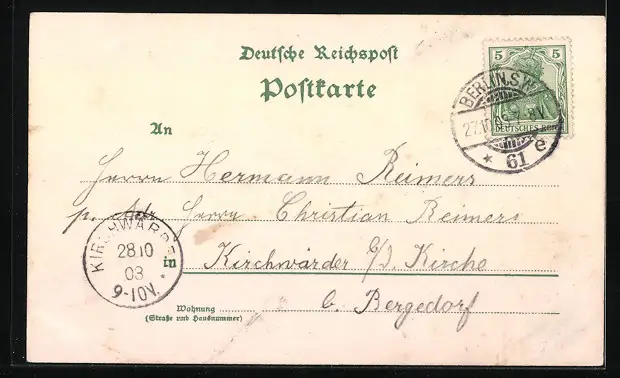 Deutsche Reichspost
Postkarte
5 5
DEUTSCHES REICH
BERLIN, S.W.
27.10.03. 7-8V.
* 61 e
An
Herrn Hermann Reimers
p. Adr. Herrn Christian Reimers
in Kirchwärder b/d. Kirche
b. Bergedorf
Wohnung
(Straße und Hausnummer)
KIRCHWÄRDER
28 10
03
9-10V.